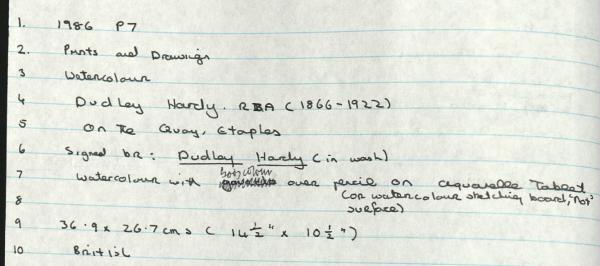 1. 1986 P7
2. Prints and Drawings
3 Watercolour
4 Dudley Hardy. RBA (1866-1922)
5 On The Quay, Etaples
6 Signed br: Dudley Hardy (in wash)
bodycolour
7 Watercolour with over pencil on aquarelle Tablet
8 (or watercolour sketching board, 'Not' surface)
9 36.9 x 26.7 cms ( 14 1/2" x 10 1/2 ")
10 British